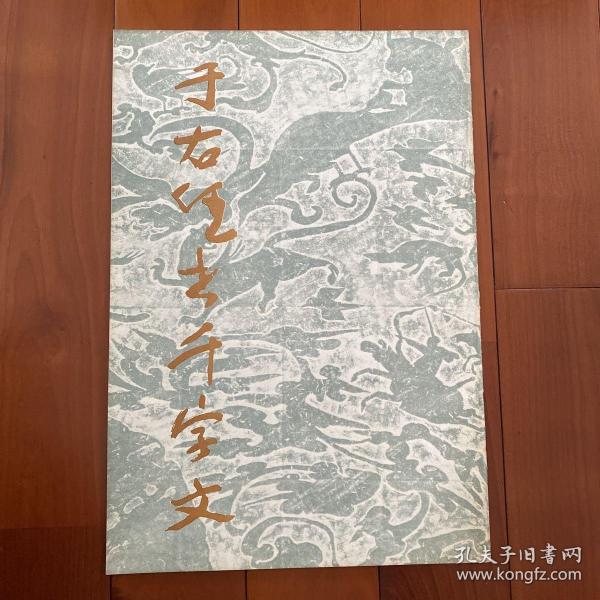 于右任书千字文
孔夫子旧書网
www.kongfz.com